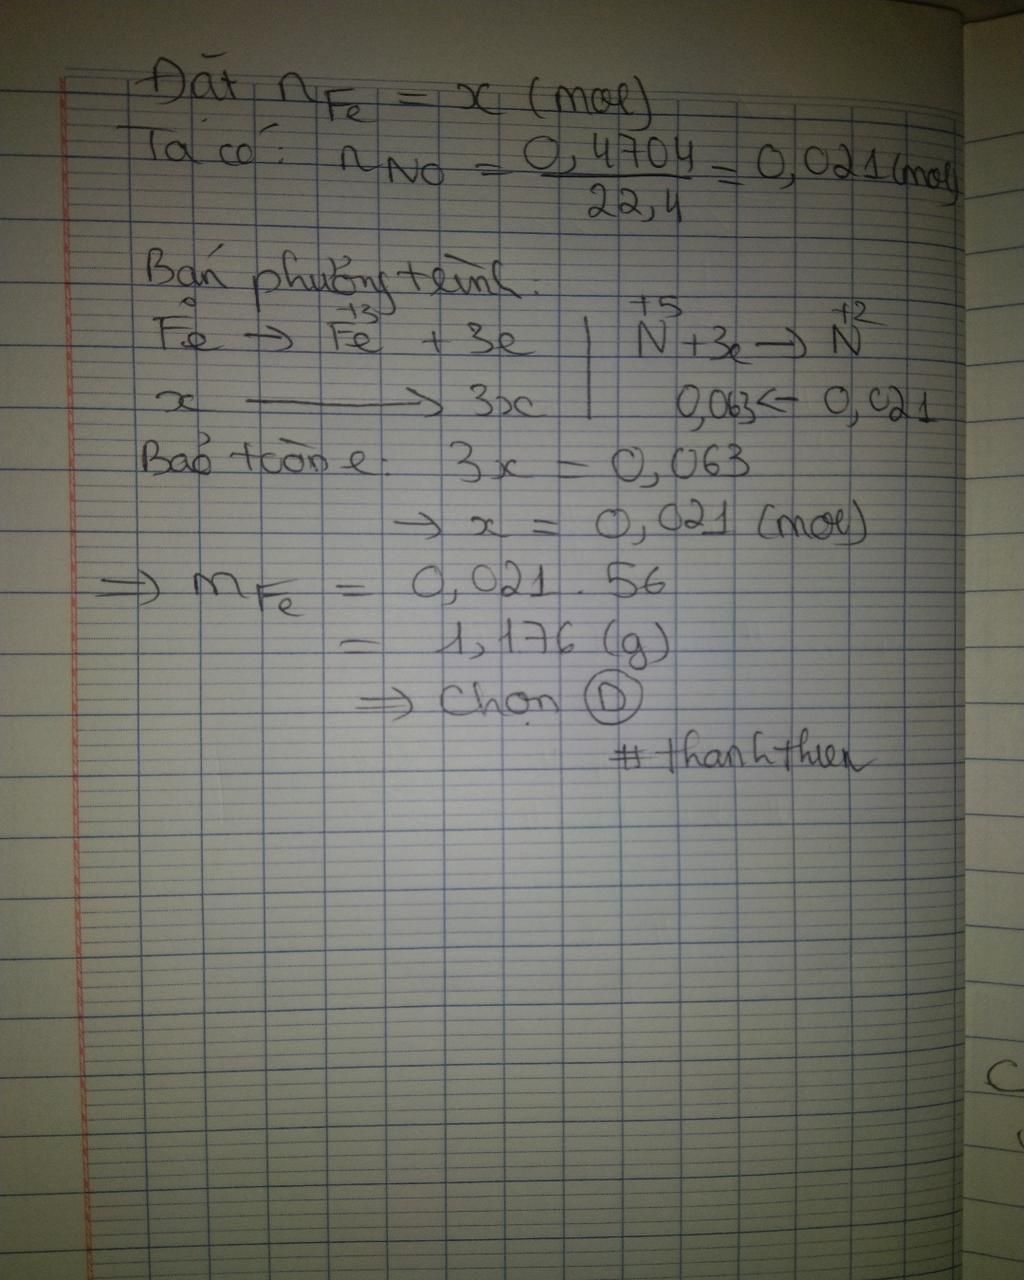 Đặt nFe = x (mol)
Ta có: nNO = 0,4704/22,4 = 0,021 (mol)
Bán phương trình:
Fe⁰ → Fe⁺³ + 3e | N⁺⁵ + 3e → N⁺²
x → 3x | 0,063 ← 0,021
Bảo toàn e: 3x = 0,063
→ x = 0,021 (mol)
⇒ mFe = 0,021 . 56
= 1,176 (g)
⇒ Chọn D
# thanhthien
C